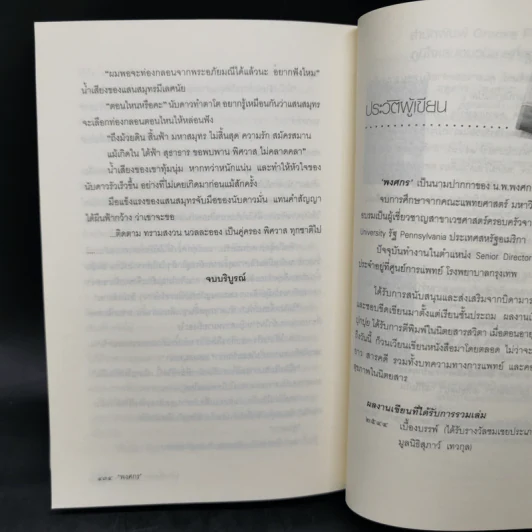 “ผมพอจะท่องกลอนจากพระอภัยมณีได้แล้วนะ อยากฟังไหม”
น้ำเสียงของแสนสมุทรมีเลศนัย
“ตอนไหนหรือคะ” นับดาวทำตาโต อยากรู้เหมือนกันว่าแสนสมุทร
จะเลือกท่องกลอนตอนไหนให้หล่อนฟัง
“ถึงม้วยดิน สิ้นฟ้า มหาสมุทร ไม่สิ้นสุด ความรัก สมัครสมาน
แม้เกิดใน ใต้ฟ้า สุธาธาร ขอพบพาน พิศวาส ไม่คลาดคลา”
น้ำเสียงของเขาทุ้มนุ่ม หากทว่าหนักแน่น และทำให้หัวใจของ
นับดาวรัวเร็วขึ้น อย่างที่ไม่เคยเกิดมาก่อนแม้สักครั้ง
มือแข็งแรงของแสนสมุทรจับมือของนับดาวมั่น แทนคำสัญญา
ได้ยืนก้าวกว้าง ว่าเขาจะขอ
...ติดตาม ทรามสงวน นวลละออง เป็นคู่ครอง พิศวาส ทุกชาติไป
จบบริบูรณ์
๔๘๔ “พงศกร”
ประวัติผู้เขียน
‘พงศกร’ เป็นนามปากกาของ น.พ.พงศกร
จบการศึกษาจากคณะแพทยศาสตร์ มหาวิ
อบรมเป็นผู้เชี่ยวชาญสาขาเวชศาสตร์ครอบครัวจาก
University รัฐ Pennsylvania ประเทศสหรัฐอเมริกา
ปัจจุบันทำงานในตำแหน่ง Senior Director
ประจำอยู่ที่ศูนย์การแพทย์ โรงพยาบาลกรุงเทพ
ได้รับการสนับสนุนและส่งเสริมจากบิดามาร
และชอบขีดเขียนมาตั้งแต่เรียนชั้นประถม ผลงาน
ได้รับการตีพิมพ์ในนิตยสารสวิตา เมื่อตอนอายุ
ถึงวันนี้ ก็วนเวียนเขียนหนังสือมาโดยตลอด ไม่ว่าจะ
สารคดี รวมทั้งบทความทางการแพทย์ และคอ
สุขภาพในนิตยสาร
ผลงานเขียนที่ได้รับการรวมเล่ม
๒๕๔๔ เบื้องบรรพ์ (ได้รับรางวัลชมเชยประเภ
มูลนิธิสุภาว์ เทวกุล)